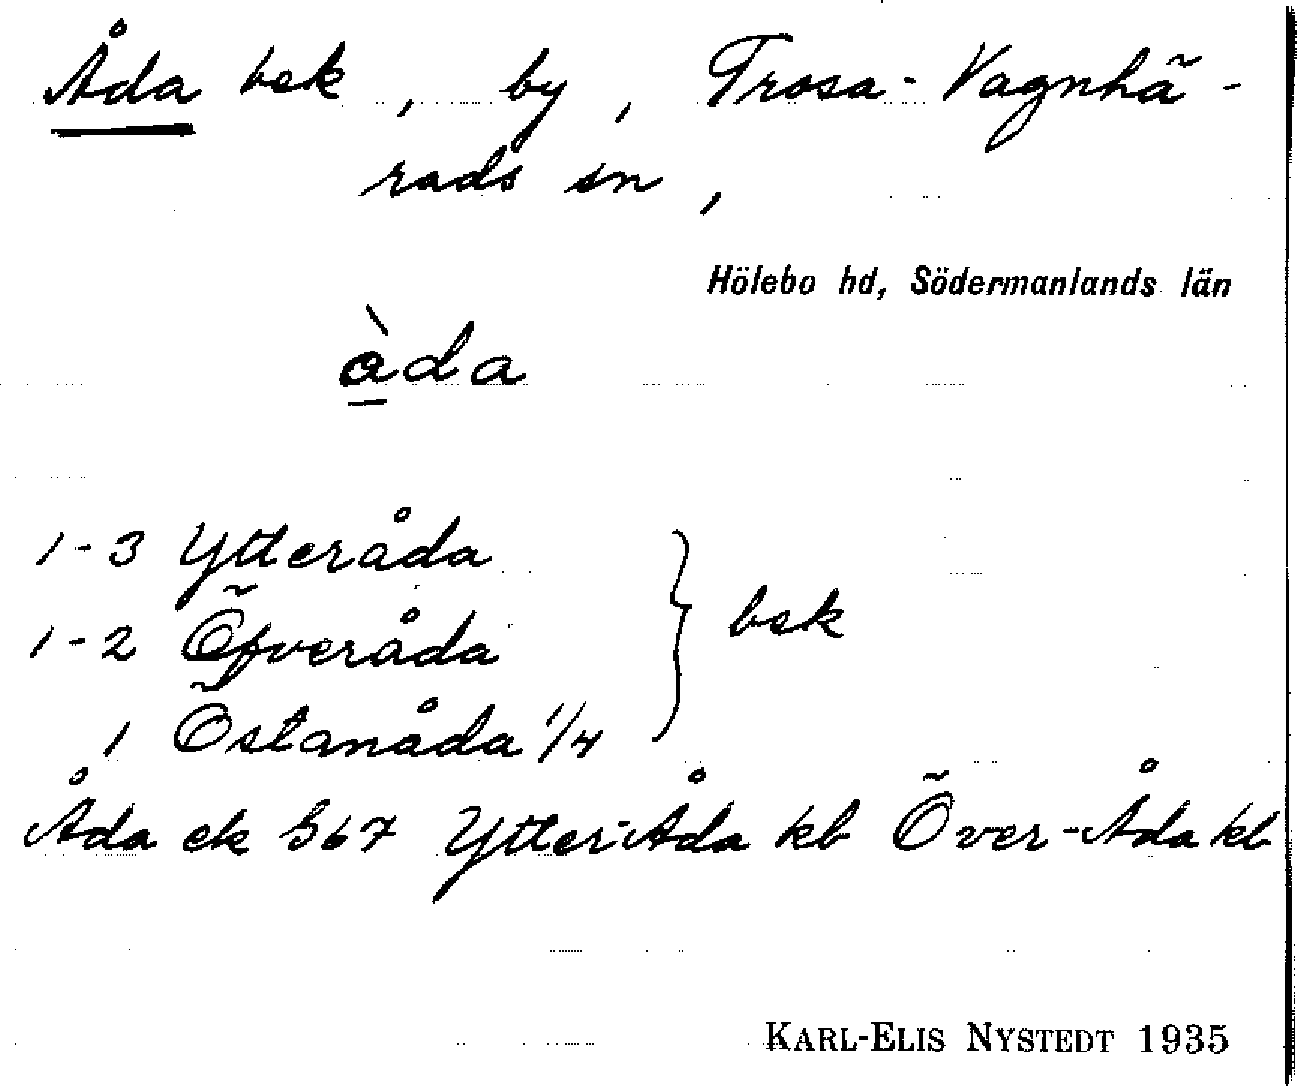 Åda bek, by, Trosa-Vagnhä-
rads sn,
Hölebo hd, Södermanlands län
àda
1-3 Ytteråda
1-2 Öfveråda } bek
1 Östanåda 1/4
Åda ek S67 Ytter-Åda kb Över-Åda kb
KARL-ELIS NYSTEDT 1935